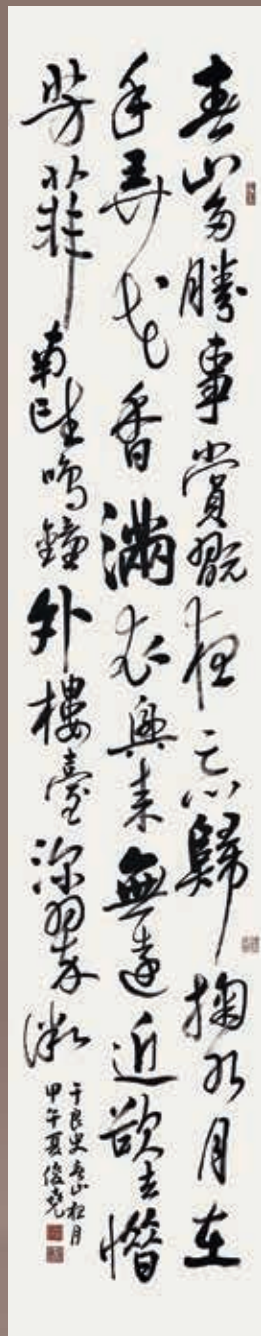 春山多勝事賞翫夜忘歸掬水月在
手弄花香滿衣興來無遠近欲去惜
芳菲南望鳴鐘处樓臺深翠微
于良史春山夜月
甲午夏俊尧